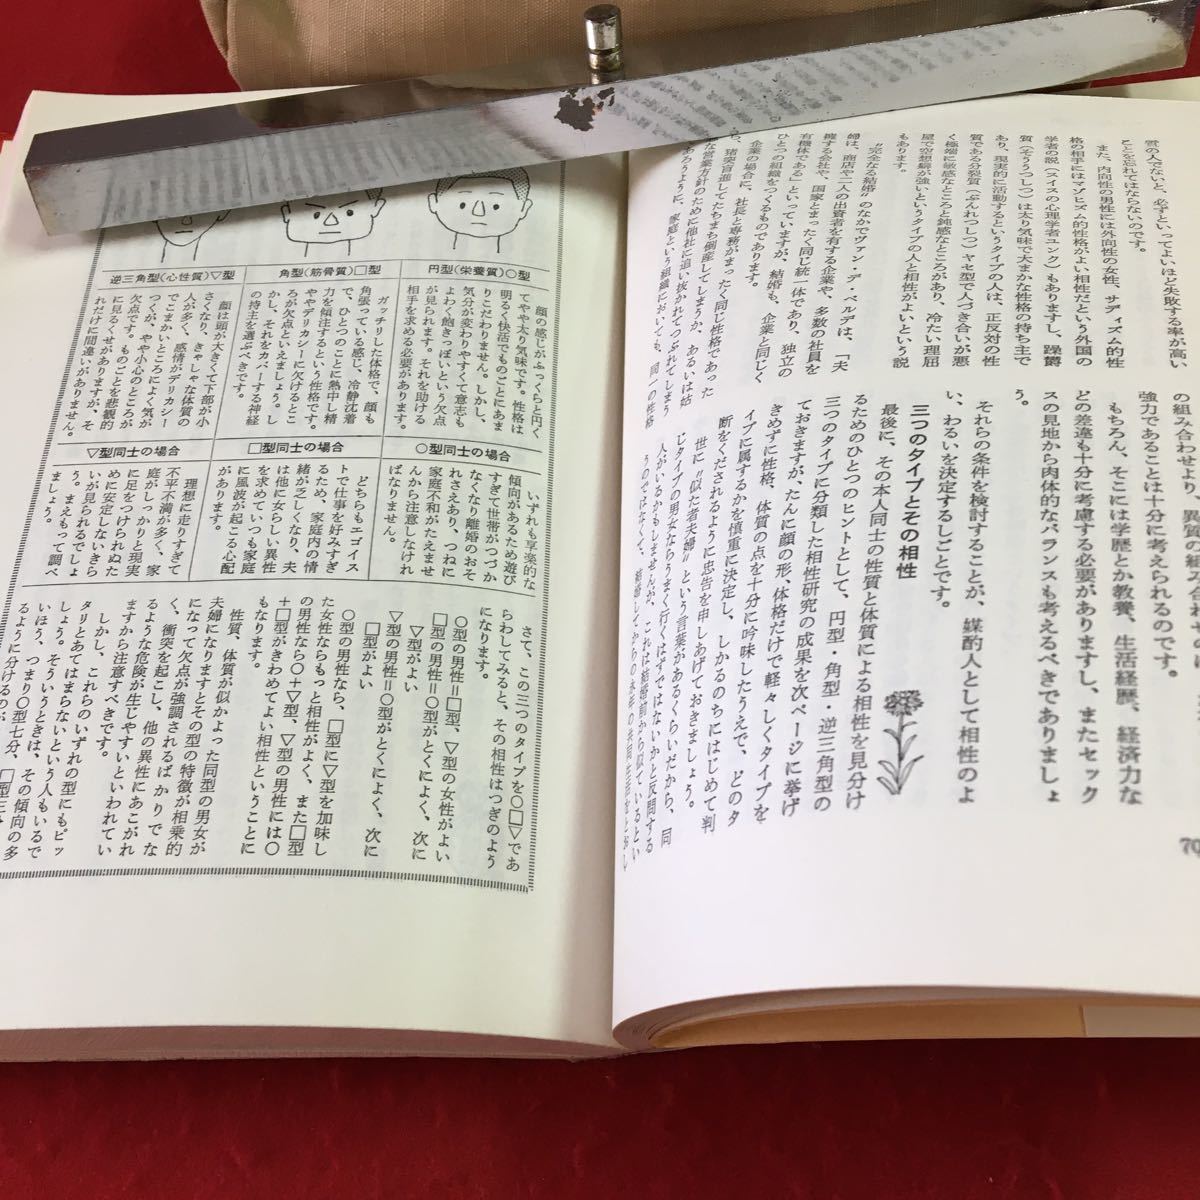 営の人でないと、必ずといってよいほど失敗する率が高い
ことを忘れてはならないのです。
また、内向性の男性には外向性の女性、サディズム的性
格の相手にはマゾヒズム的性格がよい相性だという外国の
学者の説(スイスの心理学者ユンク)もありますし、躁鬱
質(そううつしつ)は太り気味で大まかな性格の持ち主で
あり、現実的に活動するというタイプの人は、正反対の性
質である分裂質(ぶんれつしつ)、ヤセ型で人づき合いが悪
く極端に敏感なところと鈍感なところがあり、冷たい理屈
屋で空想癖が強いというタイプの人と相性がよいという説
もあります。
〝完全なる結婚〟のなかでヴァン・デ・ベルデは、「夫
婦は、商店や二人の出資者を有する企業や、多数の社員を
擁する会社や、国家とまったく同じ統一体であり、
有機体である」といっていますが、結婚も、独立の
ひとつの組織をつくるものであります。
企業の場合に、社長と専務がまったく同じ性格であった
ら、猪突盲進してたちまち倒産してしまうか、あるいは姑
な営業方針のために他社に追い抜かれてつぶれてしまう
であろうように、家庭という組織においても、同一の性格
の組み合わせより、異質の組み合わせのほ
強力であることは十分に考えられるのです。
もちろん、そこには学歴とか教養、生活経歴、経済力な
どの差違も十分に考慮する必要がありますし、またセック
スの見地から肉体的なバランスも考えるべきでありましょ
う。
それらの条件を検討することが、媒酌人として相性のよ
い、わるいを決定するしごとです。
三つのタイプとその相性
最後に、その本人同士の性質と体質による相性を見分け
るためのひとつのヒントとして、円型・角型・逆三角型の
三つのタイプに分類した相性研究の成果を次ページに挙げ
ておきますが、たんに顔の形、体格だけで軽々しくタイプを
きめずに性格、体質の点を十分に吟味したうえで、どのタ
イプに属するかを慎重に決定し、しかるのちにはじめて判
断をくだされるように忠告を申しあげておきましょう。
世に〝似た者夫婦〟という言葉があるくらいだから、同
じタイプの男女ならうまく行くはずではないかと反問する
人がいるかもしませんが、これは結婚前から似ているとい
うのではなくて、結婚してからの永年の共同生活をとおし
70
円型(栄養質)○型
顔の感じがふっくらと円く
てやや太り気味です。性格は
明るく快活でものごとにあま
りこだわりません。しかし、
気分が変わりやすくて意志も
よわく飽きっぽいという欠点
が見られます。それを助ける
相手を求める必要があります。
角型(筋骨質)□型
ガッチリした体格で、顔も
角張っている感じ、冷静沈着
で、ひとつのことに熱中し精
力を傾注するという性格です。
ややデリカシーに欠けるとこ
ろが欠点といえましょう。し
かし、それをカバーする神経
の持主を選ぶべきです。
逆三角型(心性質)▽型
顔は頭が大きくて下部が小
さくなり、きゃしゃな体質の
人が多く、感情がデリカシー
でこまかいところによく気が
つくが、やや小心のところが
欠点です。ものごとを悲観的
に見るくせがありますが、そ
れだけに間違いがありません。
○型同士の場合
いずれも享楽的な
傾向があるため遊び
すぎて世帯がつづか
なくなり離婚のおそ
れさえあり、つねに
家庭不和がたえませ
んから注意しなけれ
ばなりません。
□型同士の場合
どちらもエゴイス
トで仕事を好みすぎ
るため、家庭内の情
緒が乏しくなり、夫
は他に女らしい異性
を求めていつも家庭
に風波が起こる心配
があります。
▽型同士の場合
理想に走りすぎて
不平不満が多く、家
庭がしっかりと現実
に足をつけられぬた
めに安定しないきら
いが見られるでしょ
う。まえもって調べ
ましょう。
さて、この三つのタイプを○□▽であ
らわしてみると、その相性はつぎのよう
になります。
○型の男性=□型、▽型の女性がよい
□型の男性=○型がとくによく、次に
▽型がよい
▽型の男性=○型がとくによく、次に
□型がよい
○型の男性なら、□型に▽型を加味し
た女性ならもっと相性がよく、また□型
の男性なら○+▽型、▽型の男性には○
+□型がきわめてよい相性ということに
もなります。
性質、体質が似かよった同型の男女が
夫婦になりますとその型の特徴が相乗的
になって欠点が強調されるばかりでな
く、衝突を起こし、他の異性にあこがれ
るような危険が生じやすいといわれてい
ますから注意すべきです。
しかし、これらのいずれの型にもピッ
タリとあてはまらないという人もいるで
しょう。そういうときは、その傾向の多
いほう、つまり○型七分、□型三分
るように分けるのが